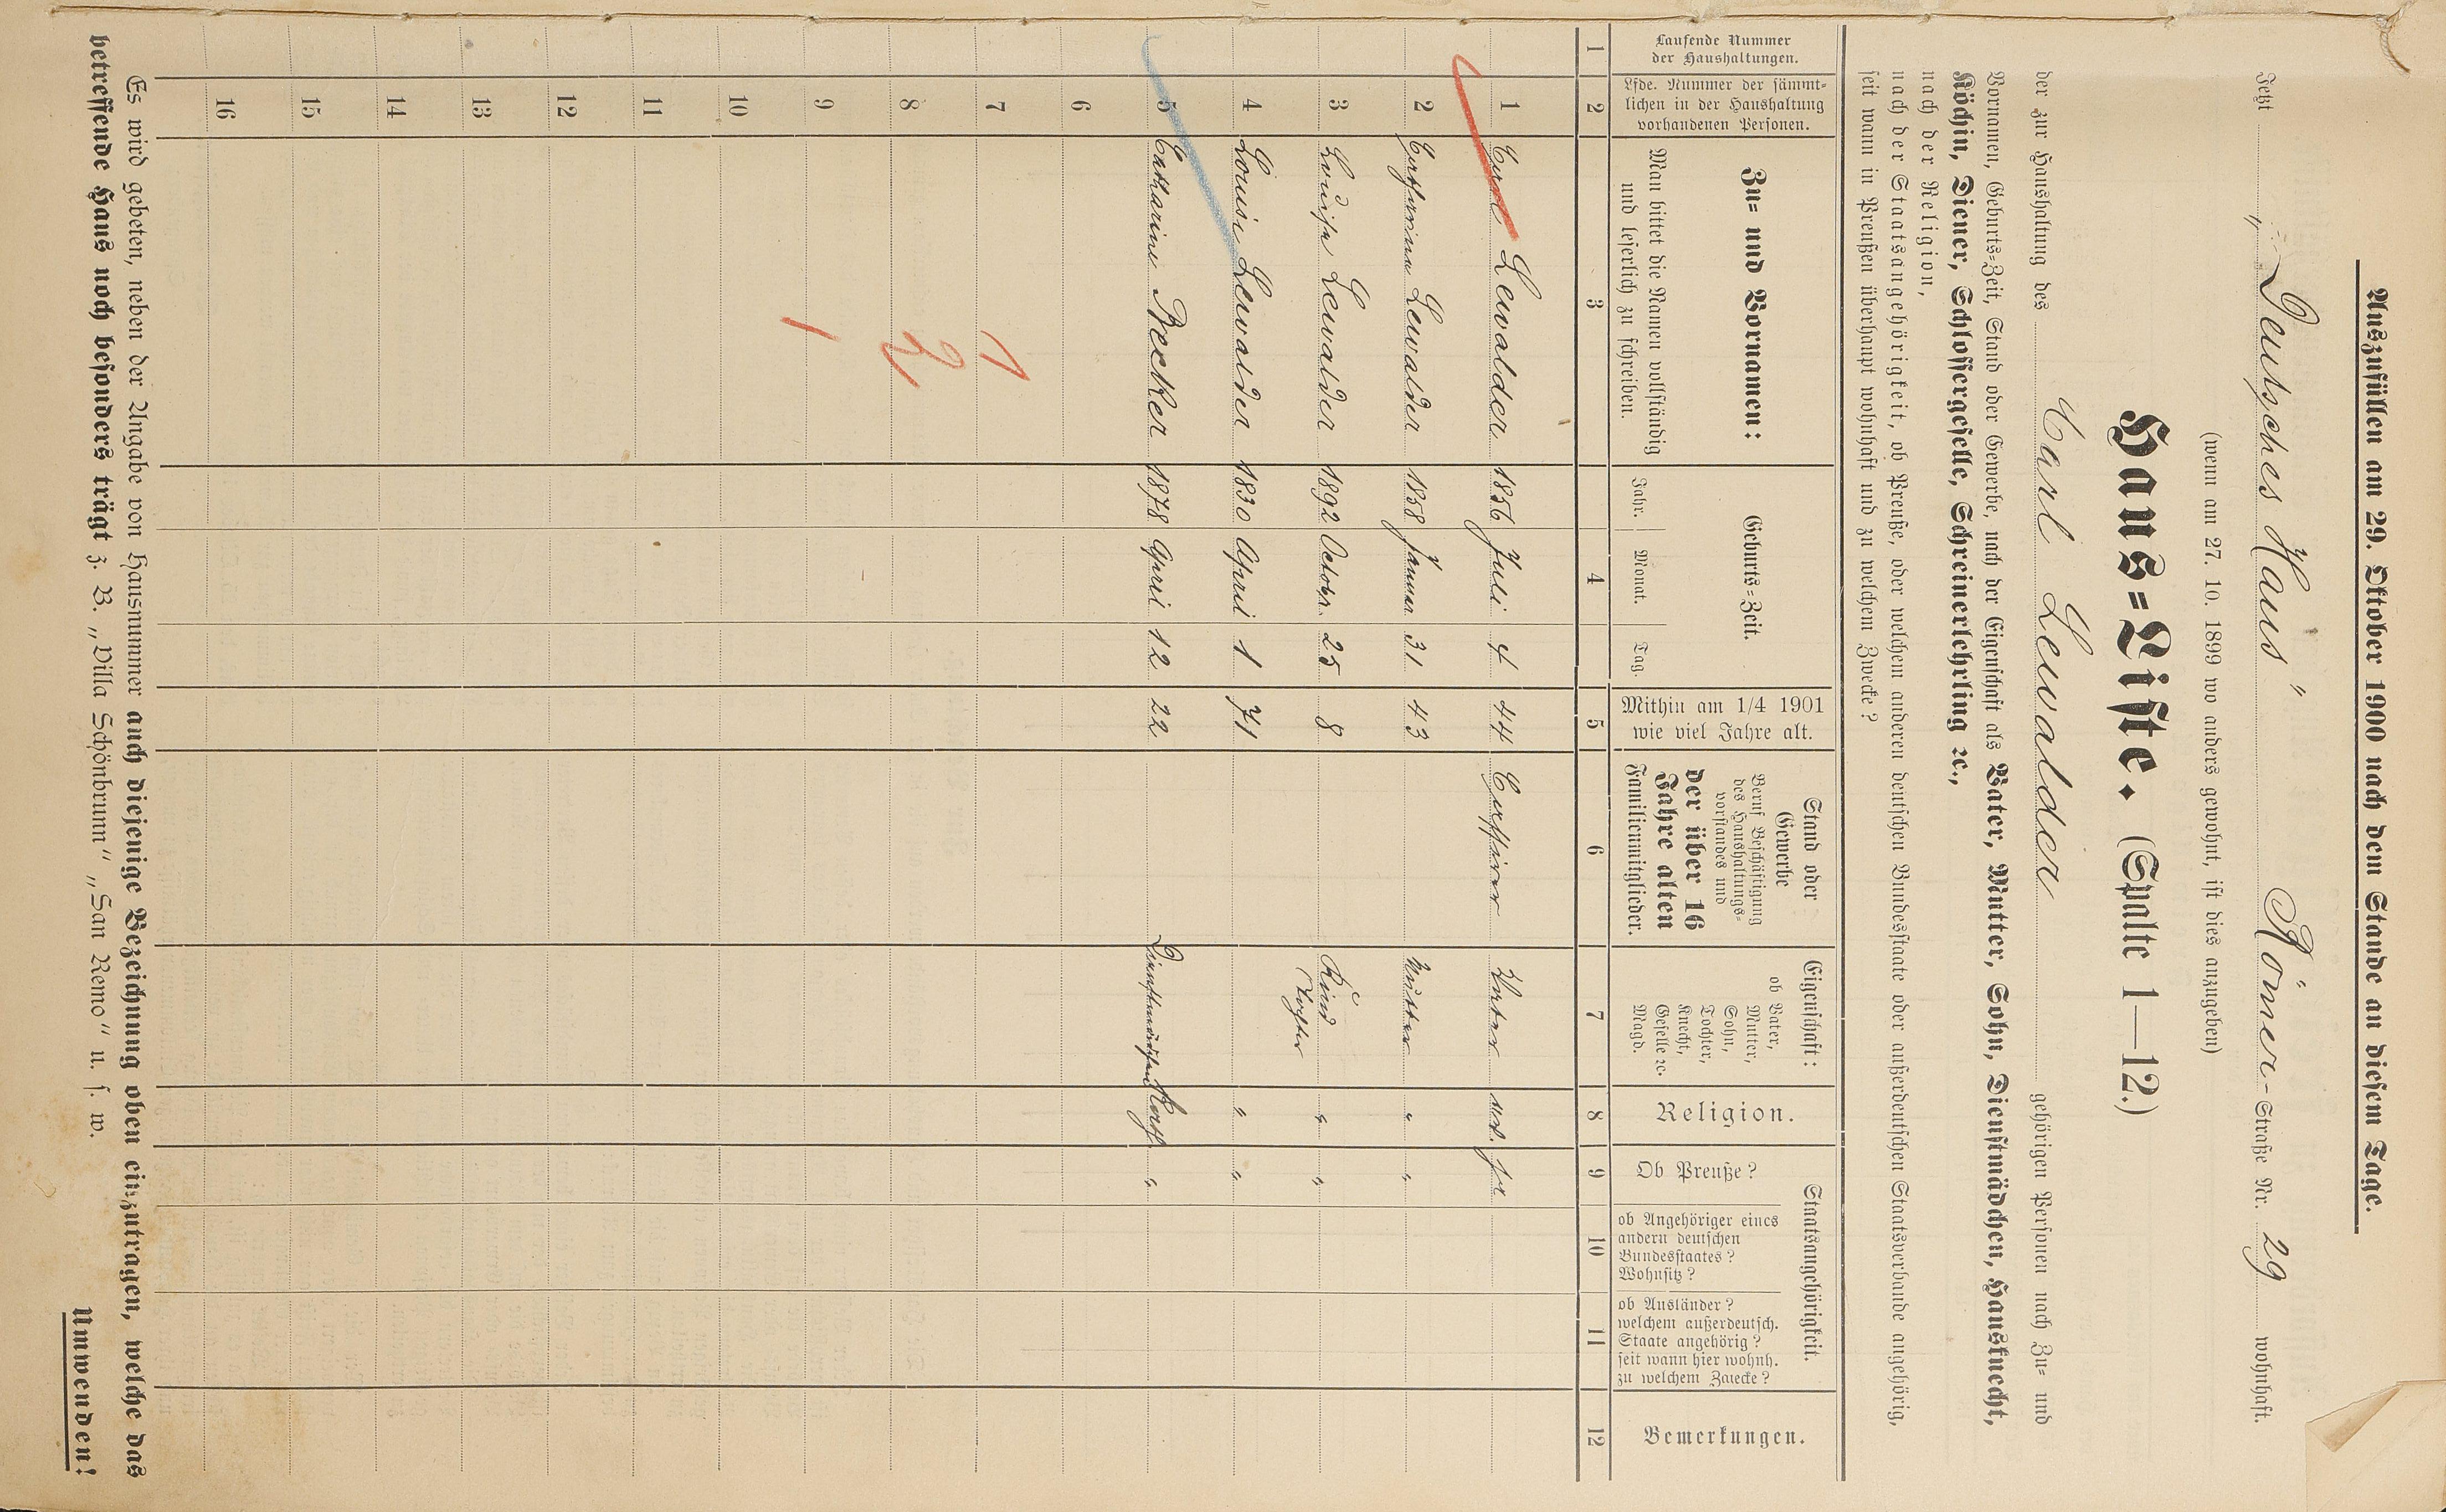 Auszufüllen am 29. Oktober 1900 nach dem Stande an diesem Tage.
Jetzt „Deutsches Haus" Römer-Straße Nr. 29 wohnhaft.
(wenn am 27. 10. 1899 wo anders gewohnt, ist dies anzugeben)
Haus-Liste. (Spalte 1—12.)
der zur Haushaltung des Carl Lewalder gehörigen Personen nach Zu- und
Vornamen, Geburts-Zeit, Stand oder Gewerbe, nach der Eigenschaft als Vater, Mutter, Sohn, Dienstmädchen, Hausknecht,
Köchin, Diener, Schlossergeselle, Schreinerlehrling ꝛc.,
nach der Religion,
nach der Staatsangehörigkeit, ob Preuße, oder welchem anderen deutschen Bundesstaate oder außerdeutschen Staatsverbande angehörig,
seit wann in Preußen überhaupt wohnhaft und zu welchem Zwecke?
Laufende Nummer
der Haushaltungen.
Lfde. Nummer der sämmt-
lichen in der Haushaltung
vorhandenen Personen.
Zu- und Vornamen:
Man bittet die Namen vollständig
und leserlich zu schreiben.
Geburts-Zeit.
Jahr. Monat. Tag.
Mithin am 1/4 1901
wie viel Jahre alt.
Stand oder
Gewerbe
Beruf Beschäftigung
des Haushaltungs-
vorstandes und
der über 16
Jahre alten
Familienmitglieder.
Eigenschaft:
ob Vater,
Mutter,
Sohn,
Tochter,
Knecht,
Geselle ꝛc.
Magd.
Religion.
Staatsangehörigkeit.
Ob Preuße?
ob Angehöriger eines
andern deutschen
Bundesstaates?
Wohnsitz?
ob Ausländer?
welchem außerdeutsch.
Staate angehörig?
seit wann hier wohnh.
zu welchem Zwecke?
Bemerkungen.
1 2 3 4 5 6 7 8 9 10 11 12
1 Carl Lewalder 1856 Juli 4 44 Vater ev. pr
2 Catharina Lewalder 1858 Januar 31 43 Mutter " "
3 Louise Lewalder 1892 Octobr. 25 8 Kind " "
Tochter
4 Louise Lewalder 1830 April 1 71 " "
5 Catharine Becker 1878 April 12 22 Dienstmädchen "
6
7 1
8 2
9 1
10
11
12
13
14
15
16
Es wird gebeten, neben der Angabe von Hausnummer auch diejenige Bezeichnung oben einzutragen, welche das
betreffende Haus noch besonders trägt z. B. „Villa Schönbrunn" „San Remo" u. s. w.
Umwenden!